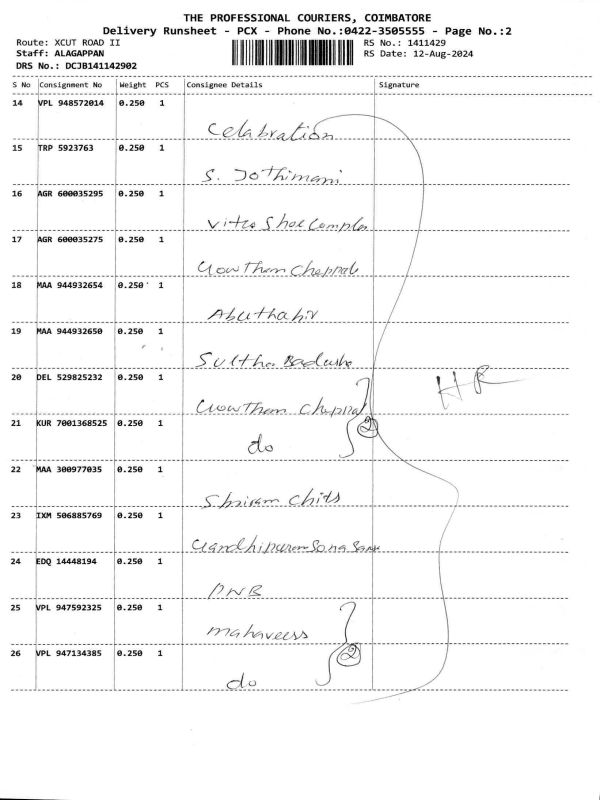 THE PROFESSIONAL COURIERS, COIMBATORE
Delivery Runsheet - PCX - Phone No.:0422-3505555 - Page No.:2
Route: XCUT ROAD II RS No.: 1411429
Staff: ALAGAPPAN RS Date: 12-Aug-2024
DRS No.: DCJB141142902
S No Consignment No Weight PCS Consignee Details Signature
14 VPL 948572014 0.250 1
Celabration
15 TRP 5923763 0.250 1
S. Jothimani
16 AGR 600035295 0.250 1
Shoe Complex
17 AGR 600035275 0.250 1
Gowtham Chappals
18 MAA 944932654 0.250 1
Abuthahir
19 MAA 944932650 0.250 1
Sultha Badusha
20 DEL 529825232 0.250 1
Gowtham Chappal
21 KUR 7001368525 0.250 1
do 2
HR
22 MAA 300977035 0.250 1
Shriram Chits
23 IXM 506885769 0.250 1
Gandhipuram Sona
24 EDQ 14448194 0.250 1
PNB
25 VPL 947592325 0.250 1
Mahaveers
26 VPL 947134385 0.250 1
do 2